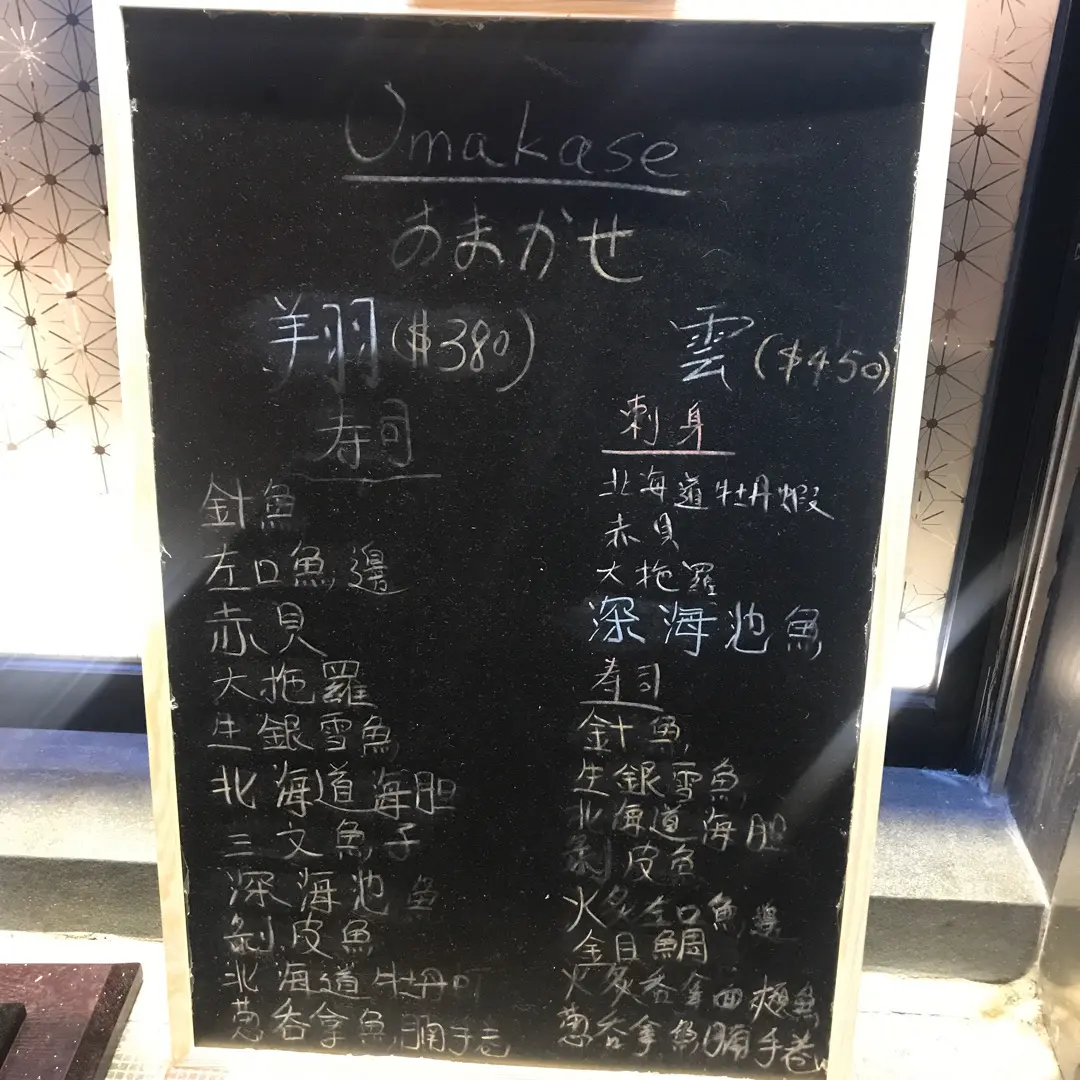 Omakase
おまかせ
翔($380)
寿司
針魚
左口魚邊
赤貝
大拖羅
生銀雪魚
北海道海胆
三文魚子
深海池魚
剝皮魚
北海道牡丹
葱吞拿魚腩手卷
雲($450)
刺身
北海道牡丹蝦
赤貝
大拖羅
深海池魚
寿司
針魚
生銀雪魚
北海道海胆
剝皮魚
火炙左口魚邊
金目鯛
火炙吞拿面頰魚
葱吞拿魚腩手卷